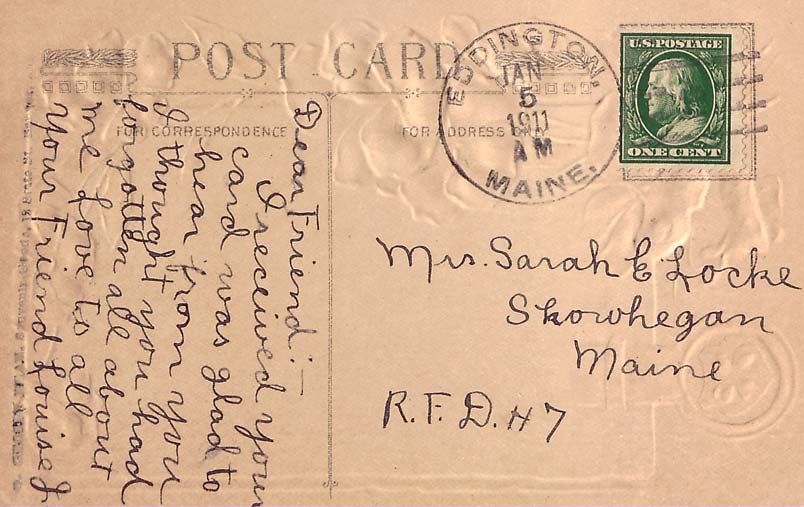 POST CARD
FOR CORRESPONDENCE
FOR ADDRESS ONLY
EDDINGTON,
JAN
5
1911
AM
MAINE.
U.S. POSTAGE
ONE CENT
Dear Friend:-
I received your
card was glad to
hear from you
I thought you had
forgotten all about
me Love to all
Your Friend Louise J
Mrs. Sarah E Locke
Skowhegan
Maine
R.F.D. #7